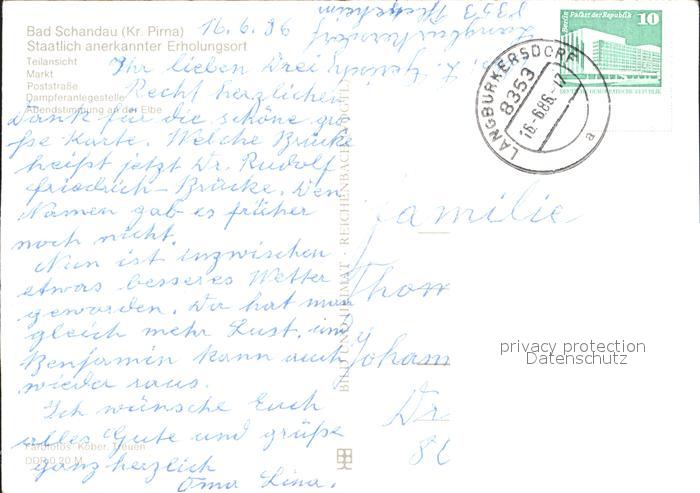 Bad Schandau (Kr. Pirna)
Staatlich anerkannter Erholungsort
Teilansicht
Markt
Poststraße
Dampferanlegestelle
Abendstimmung an der Elbe
16.6.86
Ihr lieben Drei!
Recht herzlichen
Dank für die schöne gro-
ße Karte. Welche Brücke
heißt jetzt Dr. Rudolf
Friedrich-Brücke. Den
Namen gab es früher
noch nicht.
Nun ist inzwischen
etwas besseres Wetter
geworden. Da hat man
gleich mehr Lust, und
Benjamin kann auch
wieder raus.
Ich wünsche Euch
alles Gute und grüße
ganz herzlich
Oma Lina.
Farbfotos: Kober, Treuen
DDR 0,20 M
BILD UND HEIMAT · REICHENBACH
Langburkersdorf
8353
Berlin Palast der Republik 10
DEUTSCHE DEMOKRATISCHE REPUBLIK
LANGBURKERSDORF
8353
16.6.86
a
Familie
Thom
Johann
Dr
80
privacy protection
Datenschutz